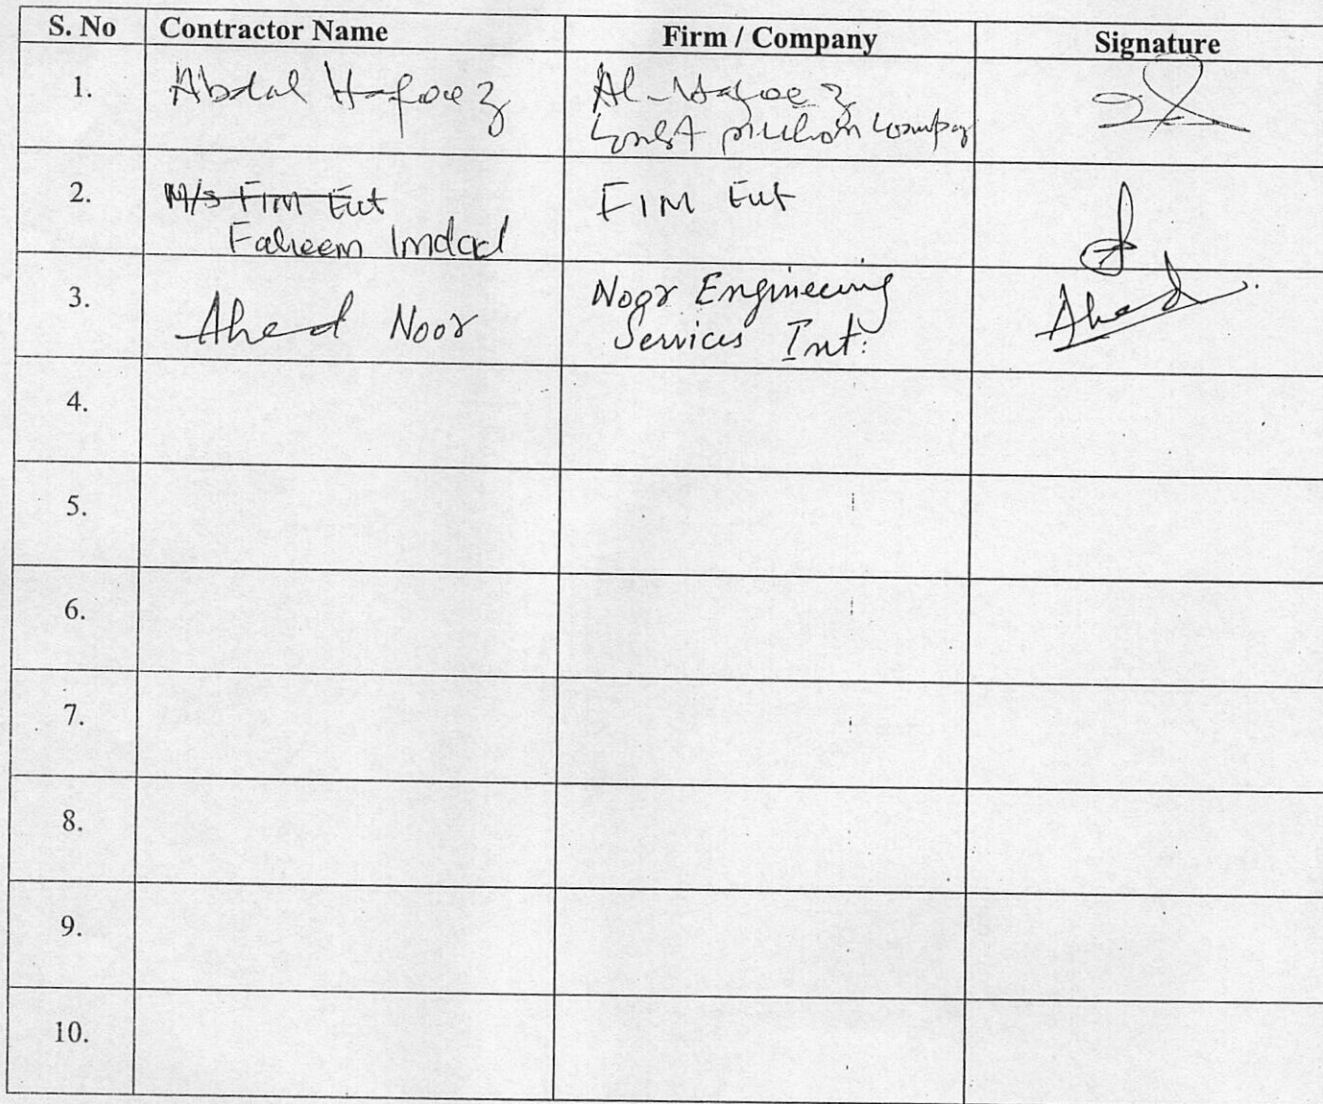 S. No Contractor Name Firm / Company Signature
1. Abdal Hafeez Al-Hafeez
Construction Company
2. M/s FIM Ent FIM Ent
Faheem Imdad
3. Ahad Noor Noor Engineering
Services Int: Ahad
4.
5.
6.
7.
8.
9.
10.